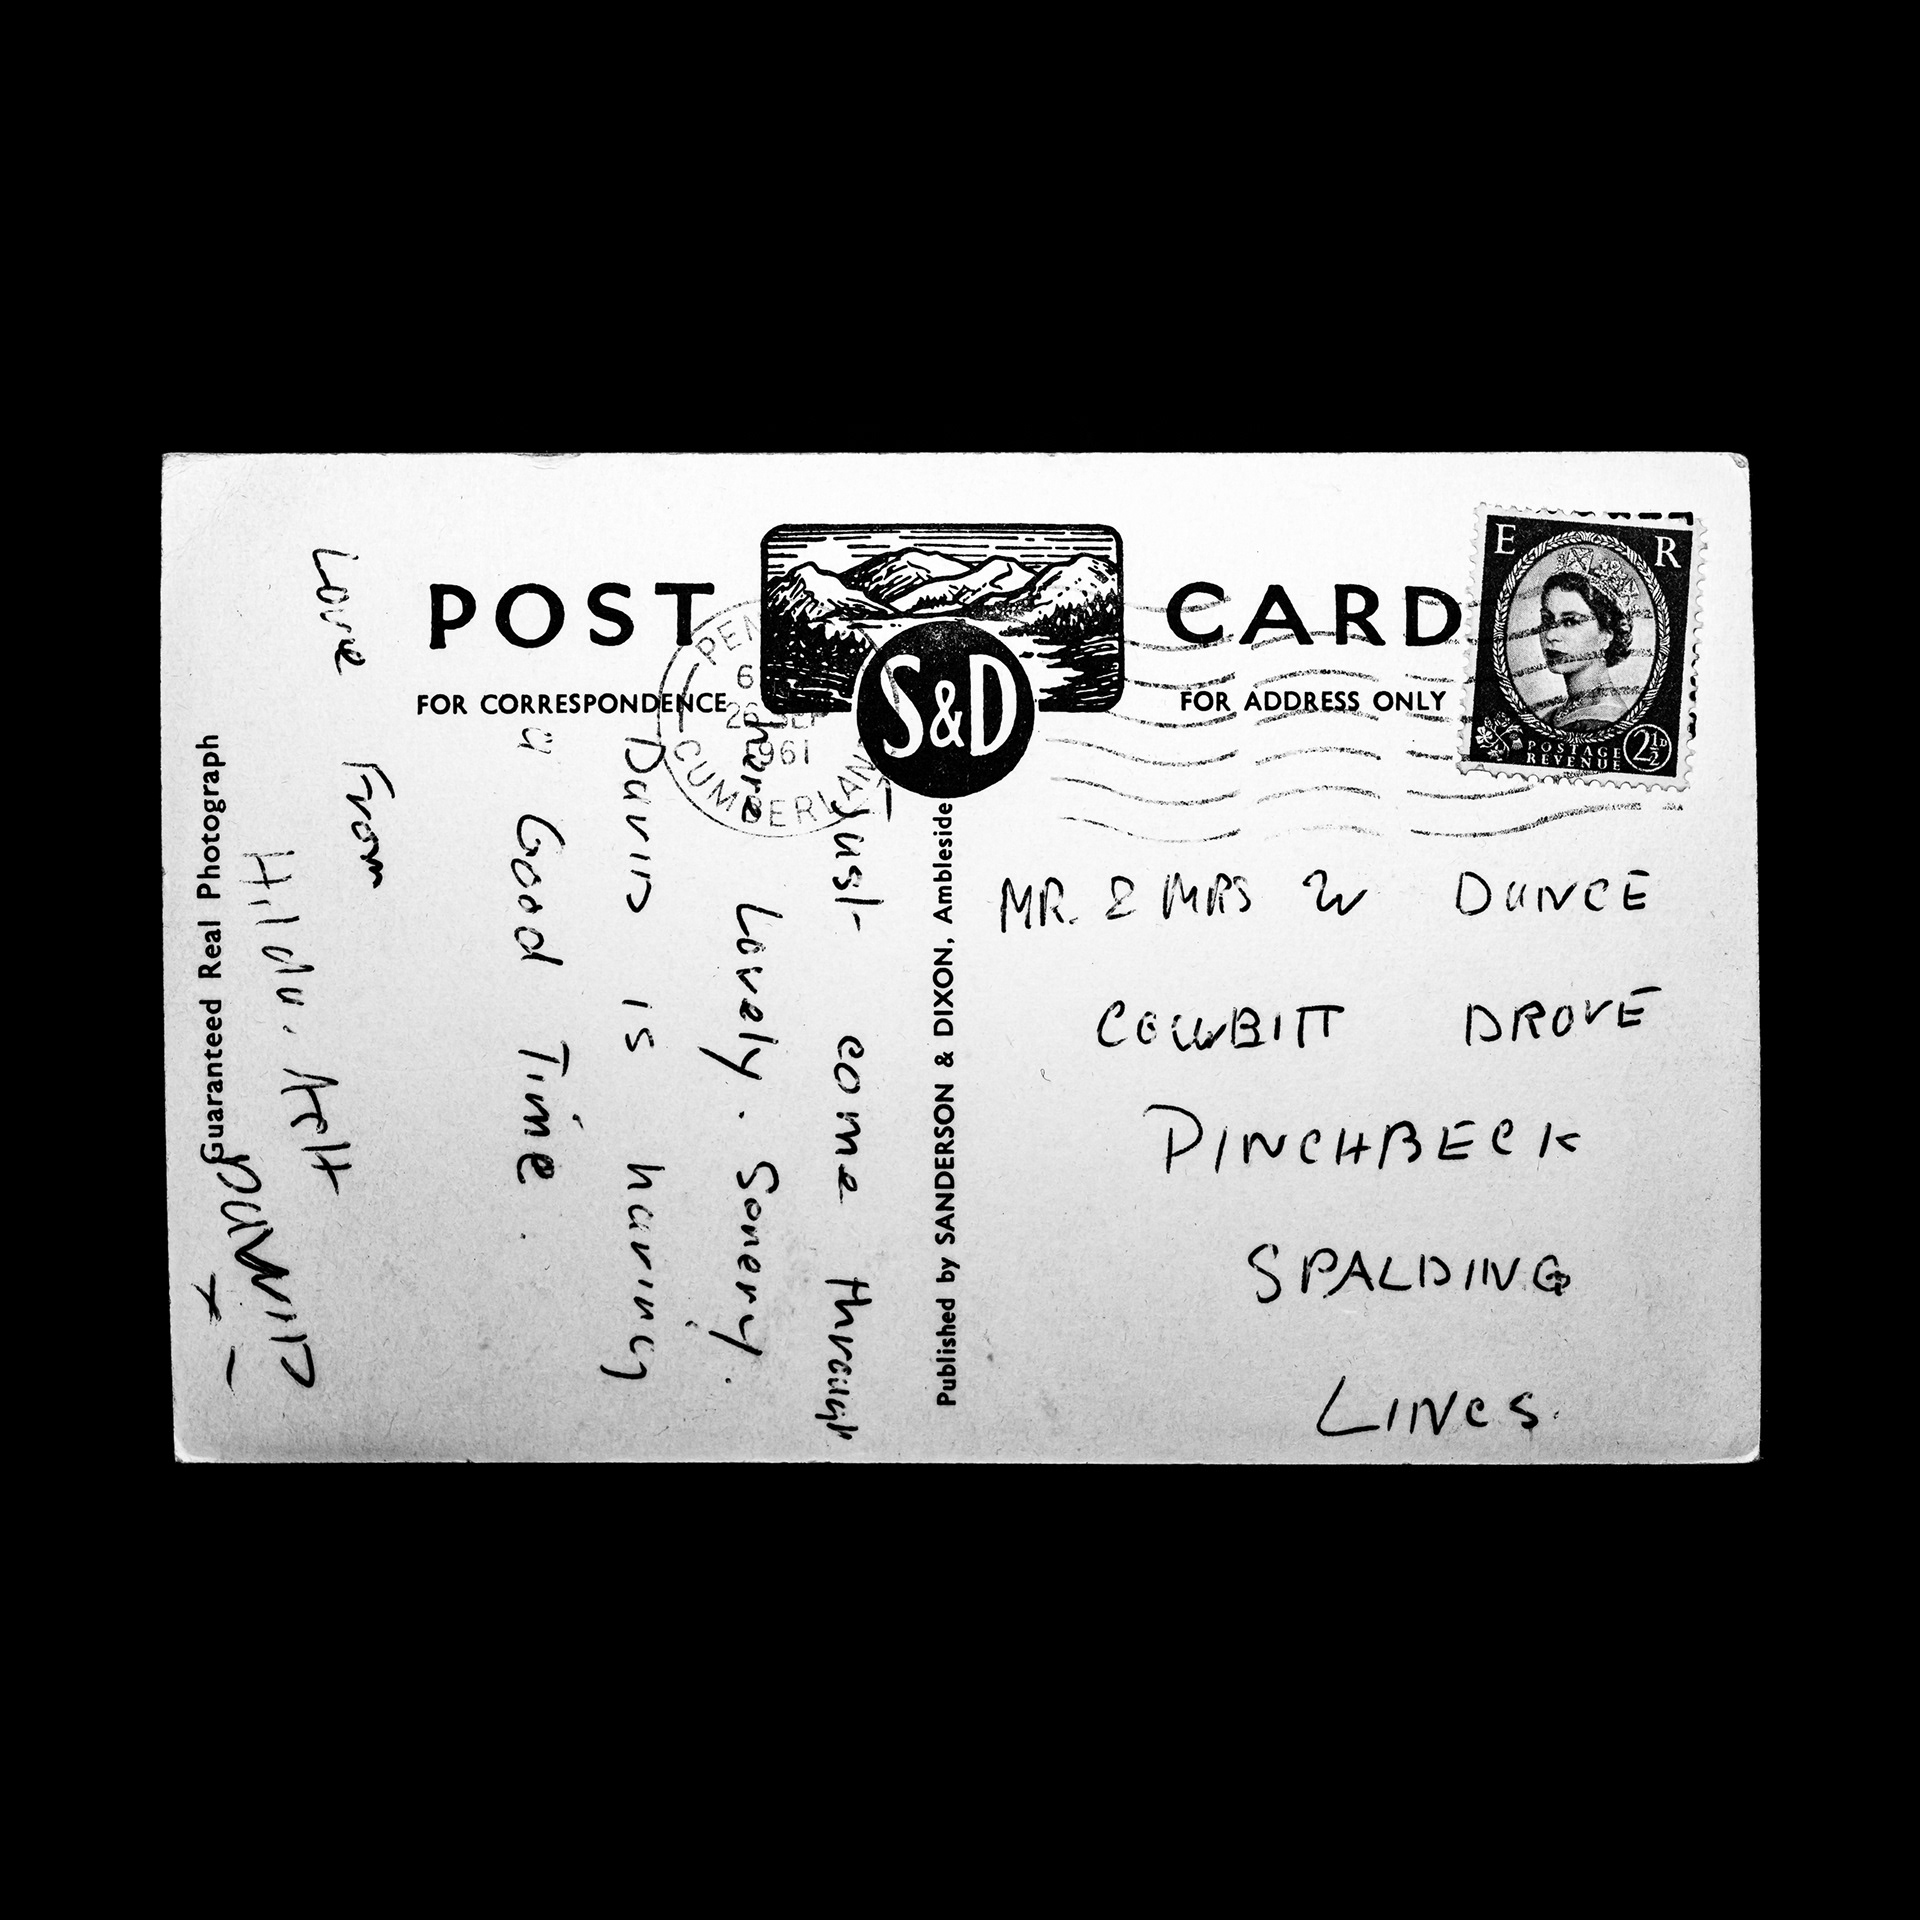 POST CARD
FOR CORRESPONDENCE
FOR ADDRESS ONLY
S&D
E R
POSTAGE
REVENUE
2½D
6
26 SEP
1961
CUMBERLAND
Just come through
here Lovely. Sonery.
David is having
a Good Time.
Love From
Hilda.
DAVID
x
Guaranteed Real Photograph
Published by SANDERSON & DIXON, Ambleside
MR. & MRS W DUNCE
COWBITT DROVE
PINCHBECK
SPALDING
LINCS.